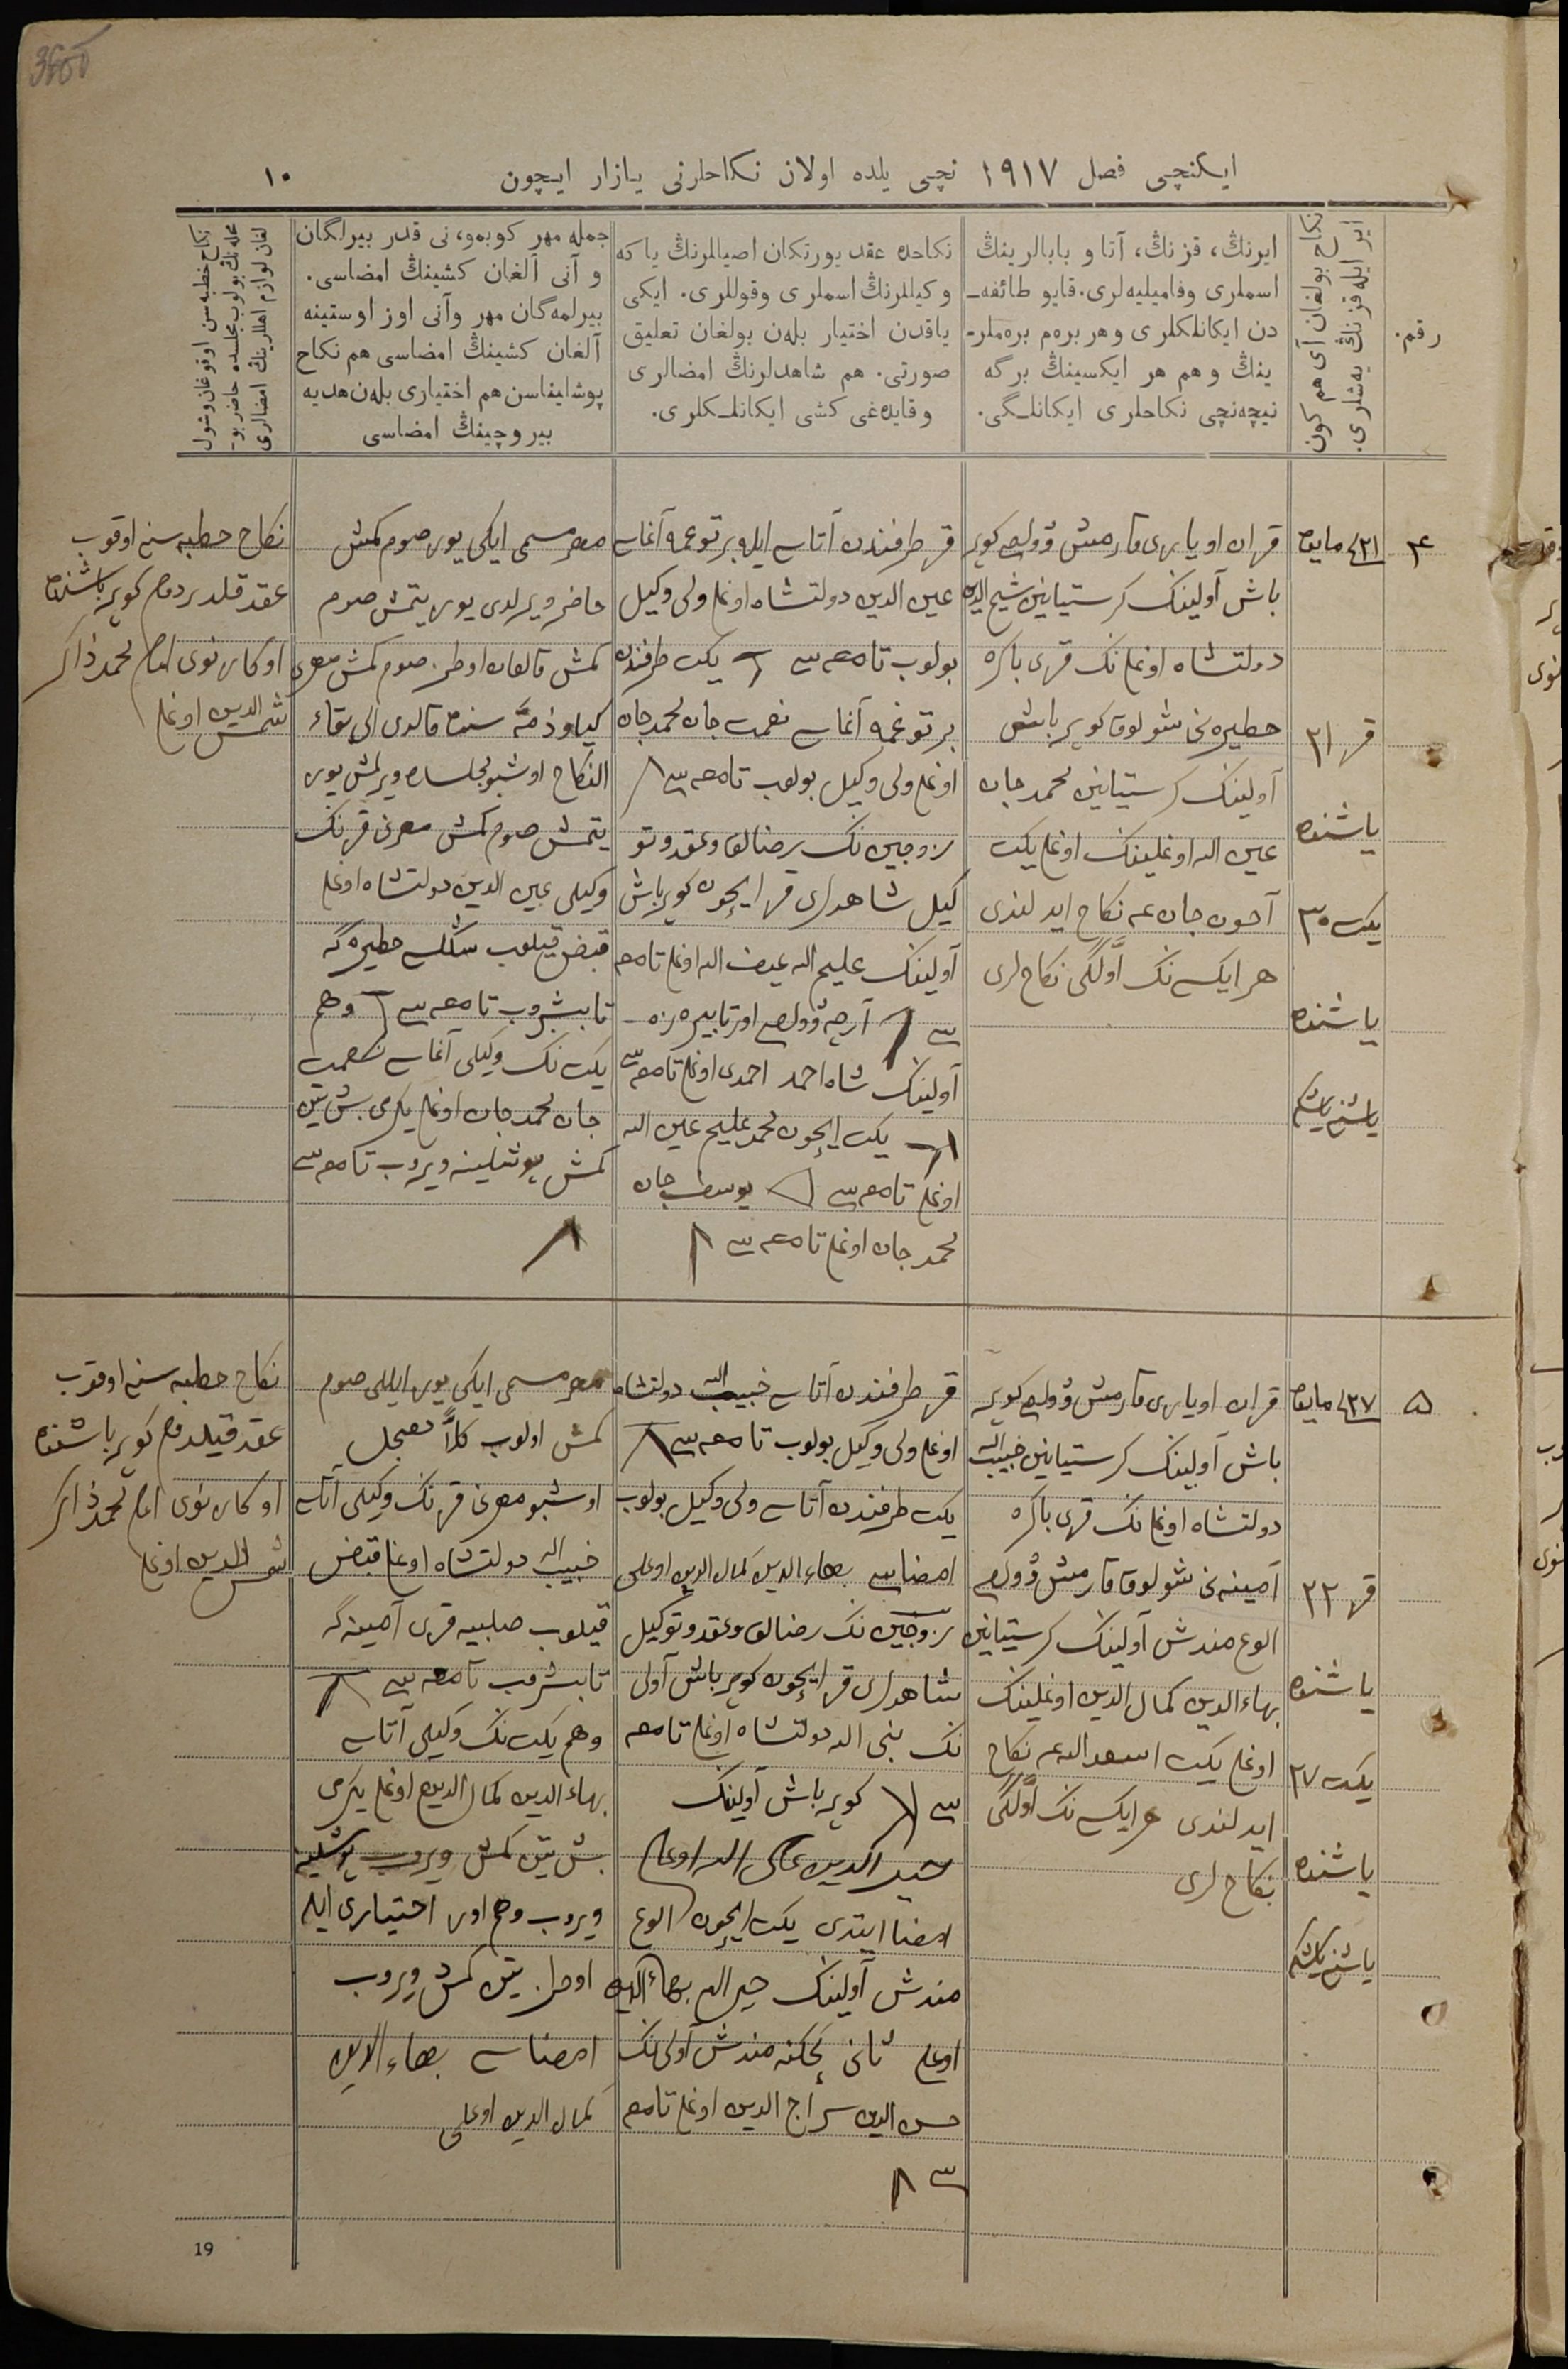 3800
ایكنچی فصل ١٩١٧ نچی یلده اولان نكاحلرنی یازار ایچون
١٠
رقم.
نكاح بولغان آی هم كون
ایر ایله قزنڭ یەشلری.
ایرنڭ، قزنڭ، آتا و بابالرینڭ
اسملری وفامیلیەلری. قایو طائفه‌ـ
دن ایكانلكلری و هر برەم برەملرـ
ینڭ و هم هر ایكسینڭ برگه
نیچه‌نچی نكاحلری ایكانلـگی.
نكاحدە عقد یورتكان اصیللرنڭ یاكه
وكیللرنڭ اسملری وقوللری. ایكی
یاقدن اختیار بلەن بولغان تعلیق
صورتی. هم شاهدلرنڭ امضالری
و قایدەغی كشی ایكانلـكلری.
جمله مهر كوبمو، نی قدر بیرلگان
و آنی آلغان كشینڭ امضاسی.
بیرلمەگان مهر وآنی اوز اوستینه
آلغان كشینڭ امضاسی هم نكاح
پوشلیناسن هم اختیاری بلەن هدیه
بیروچینڭ امضاسی
نكاح خطبه‌سن اوقوغان وشول
محله‌نڭ بولوب مجلسده حاضر بوـ
لغان لوازم اهللرینڭ امضالری
۴
٢١ نچی مایده
قز ٢١
یاشنده
یكت ٣٠
یاشنده
قزان اویازی قارمش وولصی كوپر
باش آولینڭ كرستیانین شیخ الدین
دولتشاه اوغلی نڭ قزی باكره
خطیره‌نی شولوق كوپر باش
آولینڭ كرستیانین محمد جان
عین الله اوغلینڭ اوغلی یكت
آخون جان غه نكاح ایدلندی
هر ایكسی نڭ اوّلگی نكاحلری
قز طرفندن آتاسی ایله بر توغمه آغاسی
عین الدین دولتشاه اوغلی ولی وكیل
بولوب تامغه سی یكت طرفندن
بر توغمه آغاسی نعمت جان محمد جان
اوغلی ولی وكیل بولوب تامغه سی
زوجین نڭ رضالق وعقد وتو
كیل شاهدلری قز ایچون كوپر باش
آولینڭ علیم الله عیف الله اوغلی تامغه
سی آرچه وولصی اورتا بیره‌زه
آولینڭ شاه احمد احمدی اوغلی تامغه سی
یكت ایچون محمد علیم عین الله
اوغلی تامغه سی یوسف جان
محمد جان اوغلی تامغه سی
مهر مسمی ایكی یوز صوم كمش
حاضر ویرلدی یوز یتمش صوم
كمش قالغان اوطز صوم كمش مهری
كیاو ذمّه سنده قالدی الی بقاء
النكاح اوشبو مجلسده ویرلمش یوز
یتمش صوم كمش مهرنی قزنڭ
وكیلی عین الدین دولتشاه اوغلی
قبض قیلوب خطیره گه
تابشروب تامغه سی وهم
یكت نڭ وكیلی آغاسی نعمت
جان محمد جان اوغلی یكرمی بش تین
كمش پوشلینه ویروب تامغه سی
نكاح خطبه سنی اوقوب
عقد قلدردم كوپر باشنده
اوكازنوی امام محمد ذاكر
شمس الدین اوغلی
۵
٢٧ نچی مایده
قز ٢٢
یاشنده
یكت ٢٧
یاشنده
قزان اویازی قارمش وولصی كوپر
باش آولینڭ كرستیانین حبیب الله
دولتشاه اوغلی نڭ قزی باكره
آمینه‌نی شولوق قارمش وولصی
الوغ مندش آولینڭ كرستیانین
بهاء الدین كمال الدین اوغلینڭ
اوغلی یكت اسعد الله غه نكاح
ایدلندی هر ایكسی نڭ اوّلگی
نكاحلری
قز طرفندن آتاسی حبیب الله دولتشاه
اوغلی ولی وكیل بولوب تامغه سی
یكت طرفندن آتاسی ولی وكیل بولوب
امضاسی بهاء الدین كمال الدین اوغلی
زوجین نڭ رضالق وعقد وتوكیل
شاهدلری قز ایچون كوپر باش آولی
نڭ نبی الله دولتشاه اوغلی تامغه
سی كوپر باش آولینڭ
امضا ایتدی یكت ایچون الوغ
مندش آولینڭ خیر الله بهاء الدین
اوغلی ثانی كچكنه مندش آولی نڭ
حسن الدین سراج الدین اوغلی تامغه
سی
مهر مسمی ایكی یوز ایللی صوم
كمش اولوب كلاًّ معجل
اوشبو مهرنی قزنڭ وكیلی آتاسی
حبیب الله دولتشاه اوغلی قبض
قیلوب صلبیه قزی آمینه گه
تابشروب تامغه سی
وهم یكت نڭ وكیلی آتاسی
بهاء الدین كمال الدین اوغلی یكرمی
بش تین كمش ویروب پوشلینه
ویروب وهم اوز اختیاری ایله
اوطز تین كمش ویروب
امضاسی بهاء الدین
كمال الدین اوغلی
نكاح خطبه سنی اوقوب
عقد قیلدم كوپر باشنده
اوكازنوی امام محمد ذاكر
شمس الدین اوغلی
19